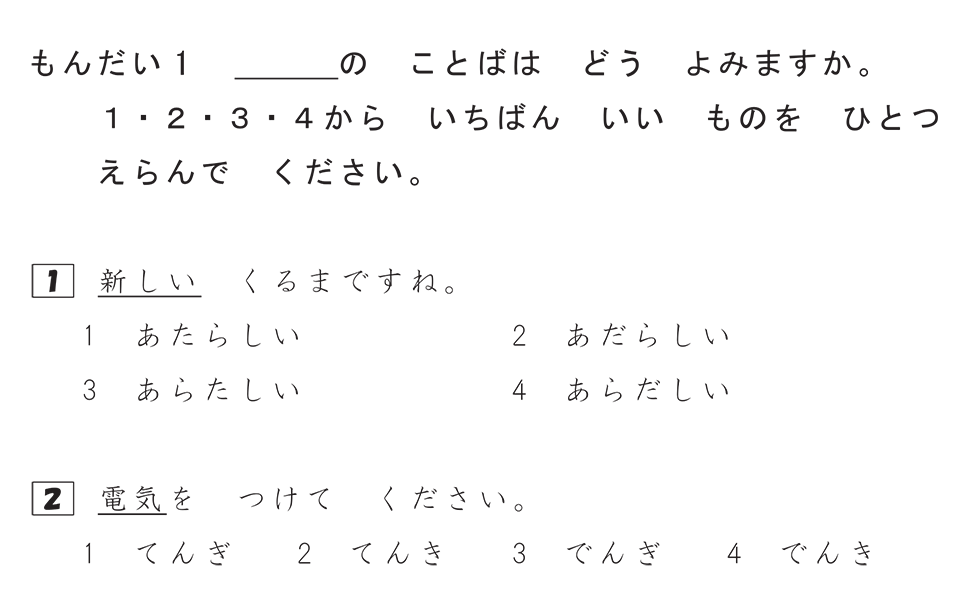 もんだい１　＿＿＿の　ことばは　どう　よみますか。
１・２・３・４から　いちばん　いい　ものを　ひとつ
えらんで　ください。
1　新しい　くるまですね。
1　あたらしい　2　あだらしい
3　あらたしい　4　あらだしい
2　電気を　つけて　ください。
1　てんぎ　2　てんき　3　でんぎ　4　でんき